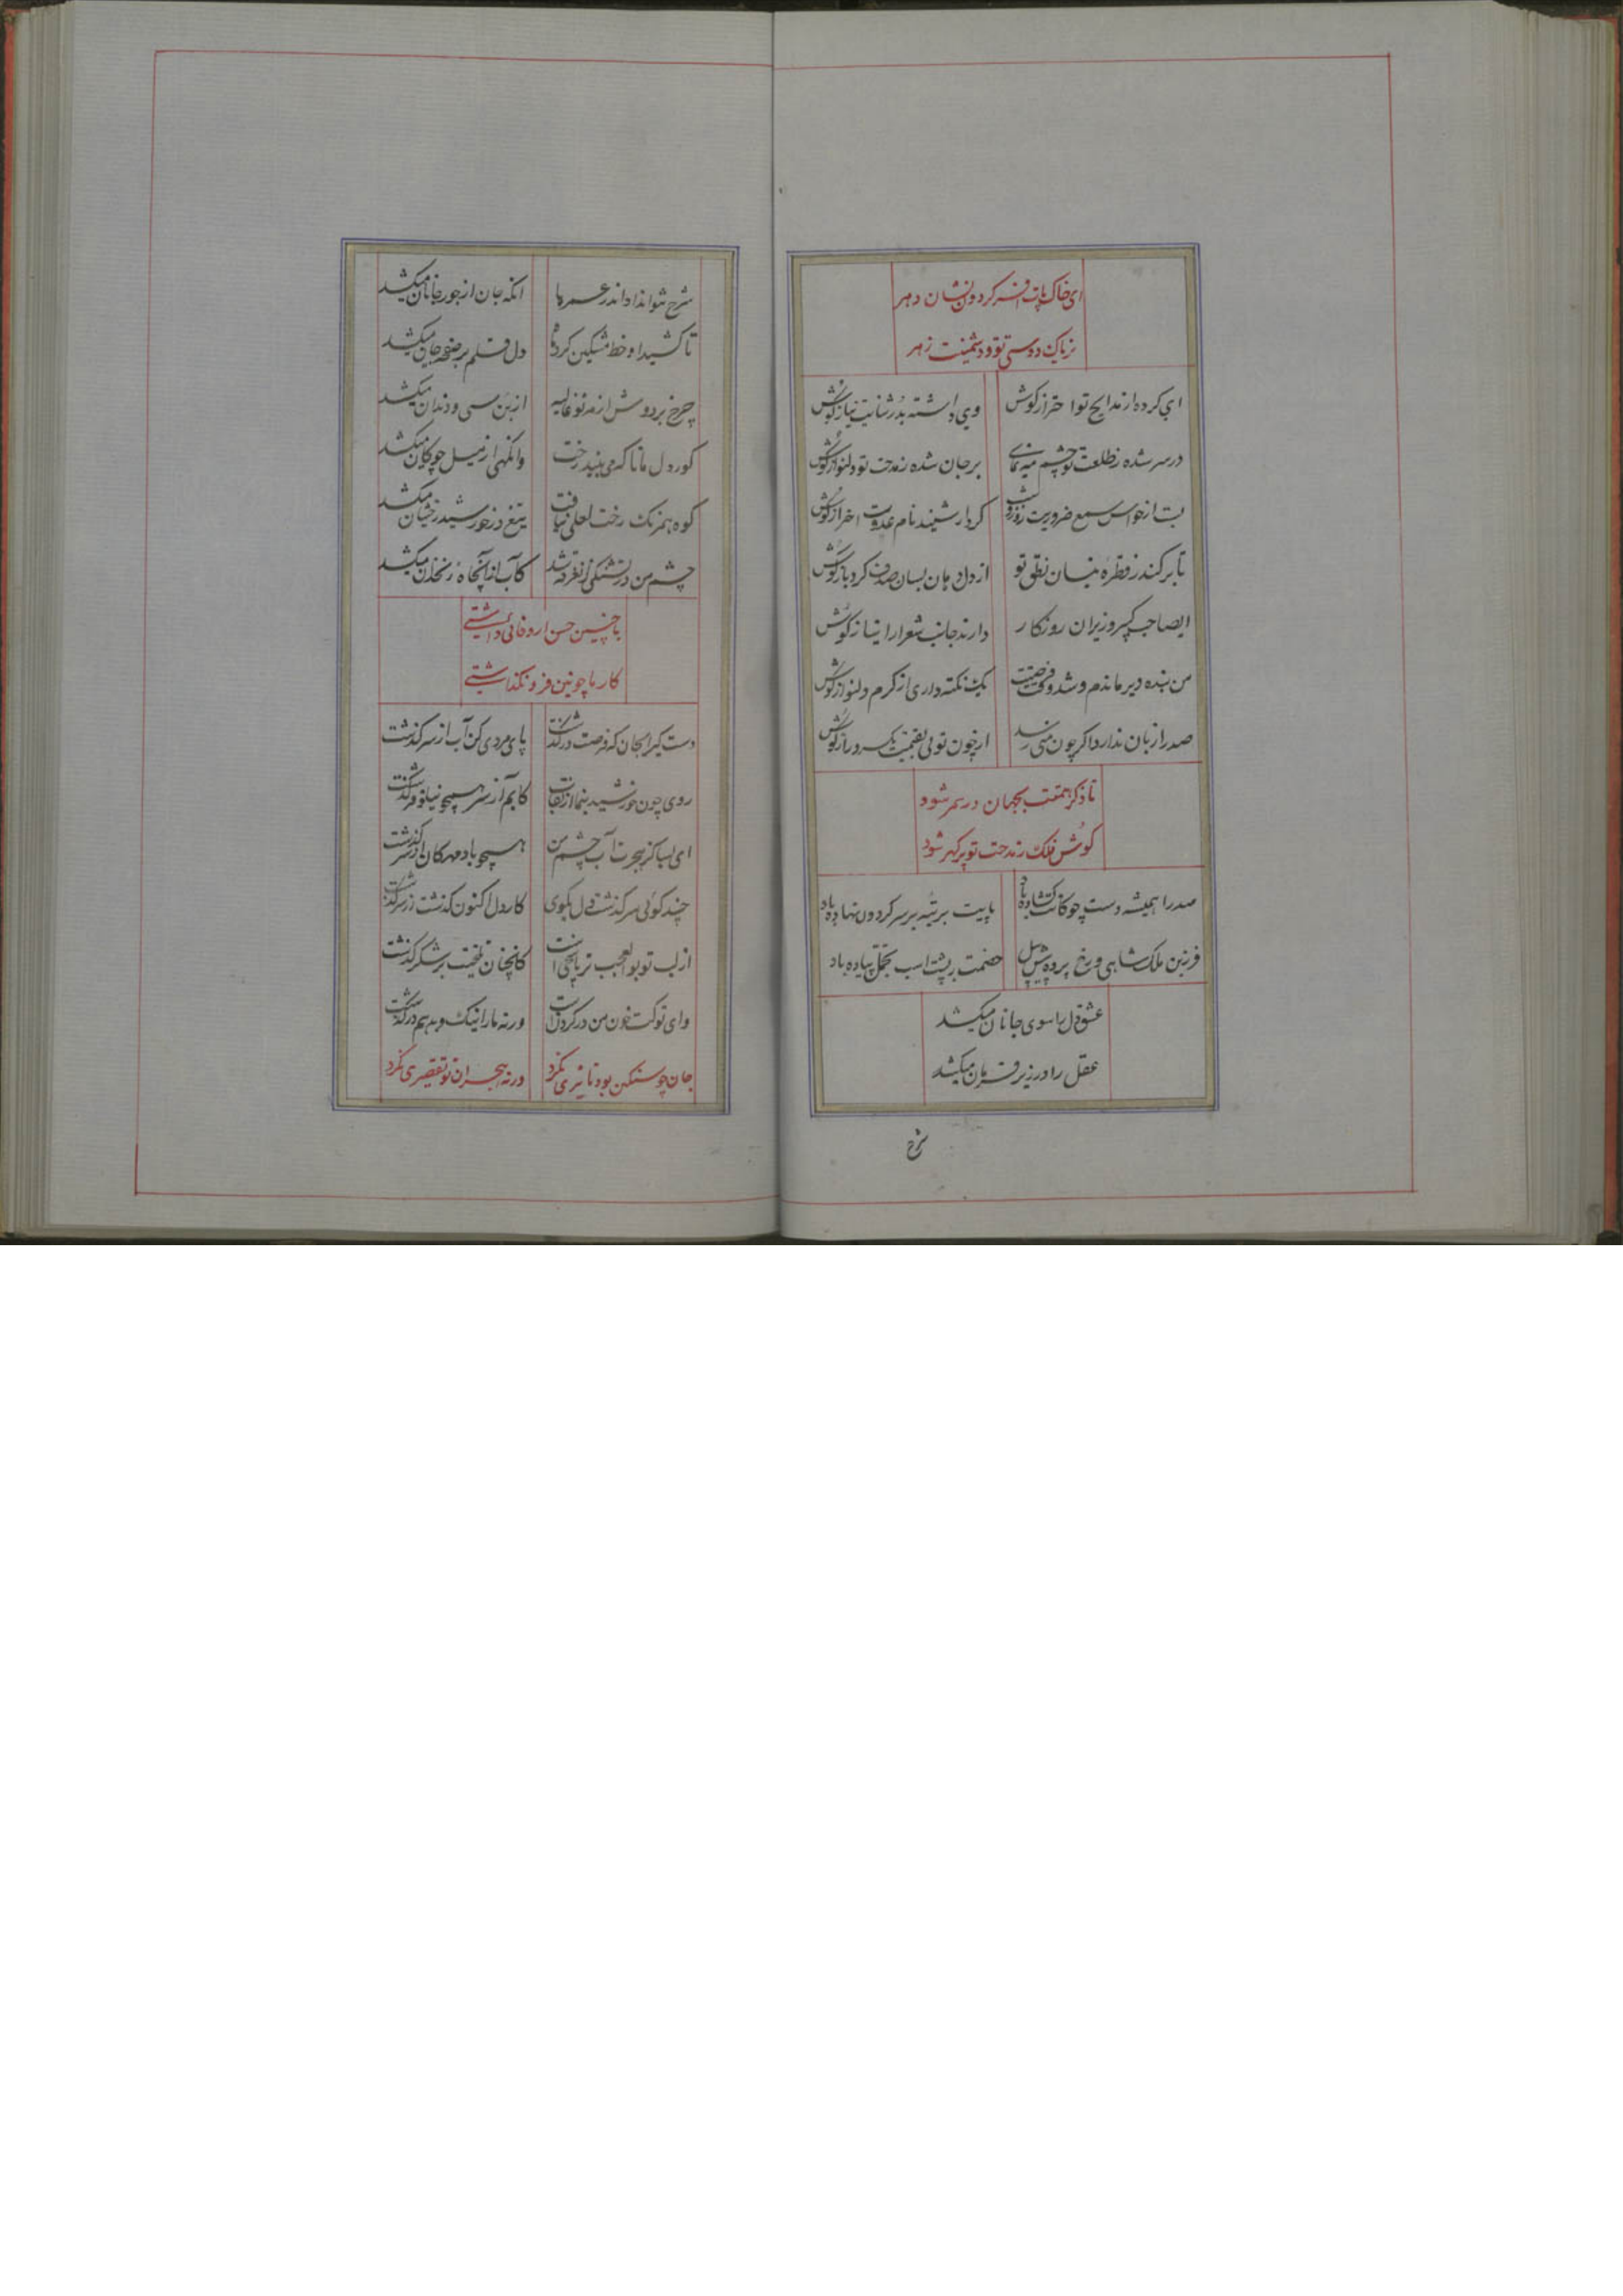 ای خاک پایت افسر گردون نشان دهر
تریاک دوستی تو و دشمنیت زهر
ای کرده از مدایح تو احتراز گوش
وی داشته بدر ثنایت نیاز گوش
در سر شده ز طلعت تو چشم
بر جان شده ز مدحت تو دلنواز گوش
از خواس سمع ضروریت روز و شب
کردار شنیند نام عدوت احتراز گوش
تا بر کند ز قطره نیسان نطق تو
از دل دهان بسان صدف کرد باز گوش
ایصاحب کبیر وزیران روزکار
دارند جانب شعرا را نیاز گوش
من بنده دیر ماندم و شد وقت
یک نکته داری از کرم دلنواز گوش
صدرا زبان ندارد اگر چون منی رسد
ار چون تویی
تا ذکر همتت بجهان در سمر شود
گوش فلک ز مدحت تو پر گهر شود
صدرا همیشه دست چو کانت گشاده باد
پایت برتبه بر سر گردون نهاده باد
فرزین ملک شاهی و رخ برده پیش پیل
خصمت ز پشت اسب تجمل پیاده باد
عشق دل را سوی جانان میکشد
عقل را در زیر فرمان میکشد
شرح
شرح نتواند داد اندر عمرها
انکه جان از جور جانان میکشد
تا کشید او خط مشکین کرد ماه
دل قلم بر صفحه جان میکشد
چرخ بر دوش از مه نو غالیه
از بن سی و دندان میکشد
کور دل مانا که می بیند رخت
وانگهی از میل چوگان میکشد
کوه همرنگ رخت لعلی نیافت
تیغ در خورشید رخشان میکشد
چشم من در تشنگی زان غرقه شد
کآب از آنچاه زنخدان میکشد
با چنین حسن ار وفائی داشتی
کار ما چونین فرو نگذاشتی
دست گیر ایجان که فرصت درگذشت
پای مردی کن آب از سر گذشت
روی چون خورشید بنما از نقاب
کابم از سر همچو نیلوفر گذشت
ای بسا کز هجرت آب چشم من
همچو باد مهرکان از سر گذشت
چند گوئی سرگذشت دل بگوی
کار دل اکنون گذشت از سرگذشت
از لب تو بوالعجب تر پاسخی است
کانچنان تلخیت بر شکر گذشت
وای تو کت خون من در گردن است
ورنه مارا نیک و بد هم درگذشت
جان چو سنگین بود تاثیری نکرد
ورنه هجران تو تقصیری نکرد